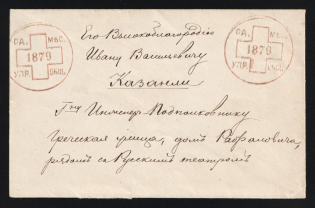 ОД. МѢС.
1879
УПР. ОБЩ.
ОД. МѢС.
1879
УПР. ОБЩ.
Его Высокоблагородію
Ивану Васильевичу
Казанли
Гну Инженеръ Подполковнику
Греческая улица, домъ Рафаловича,
рядомъ съ Русскимъ театромъ